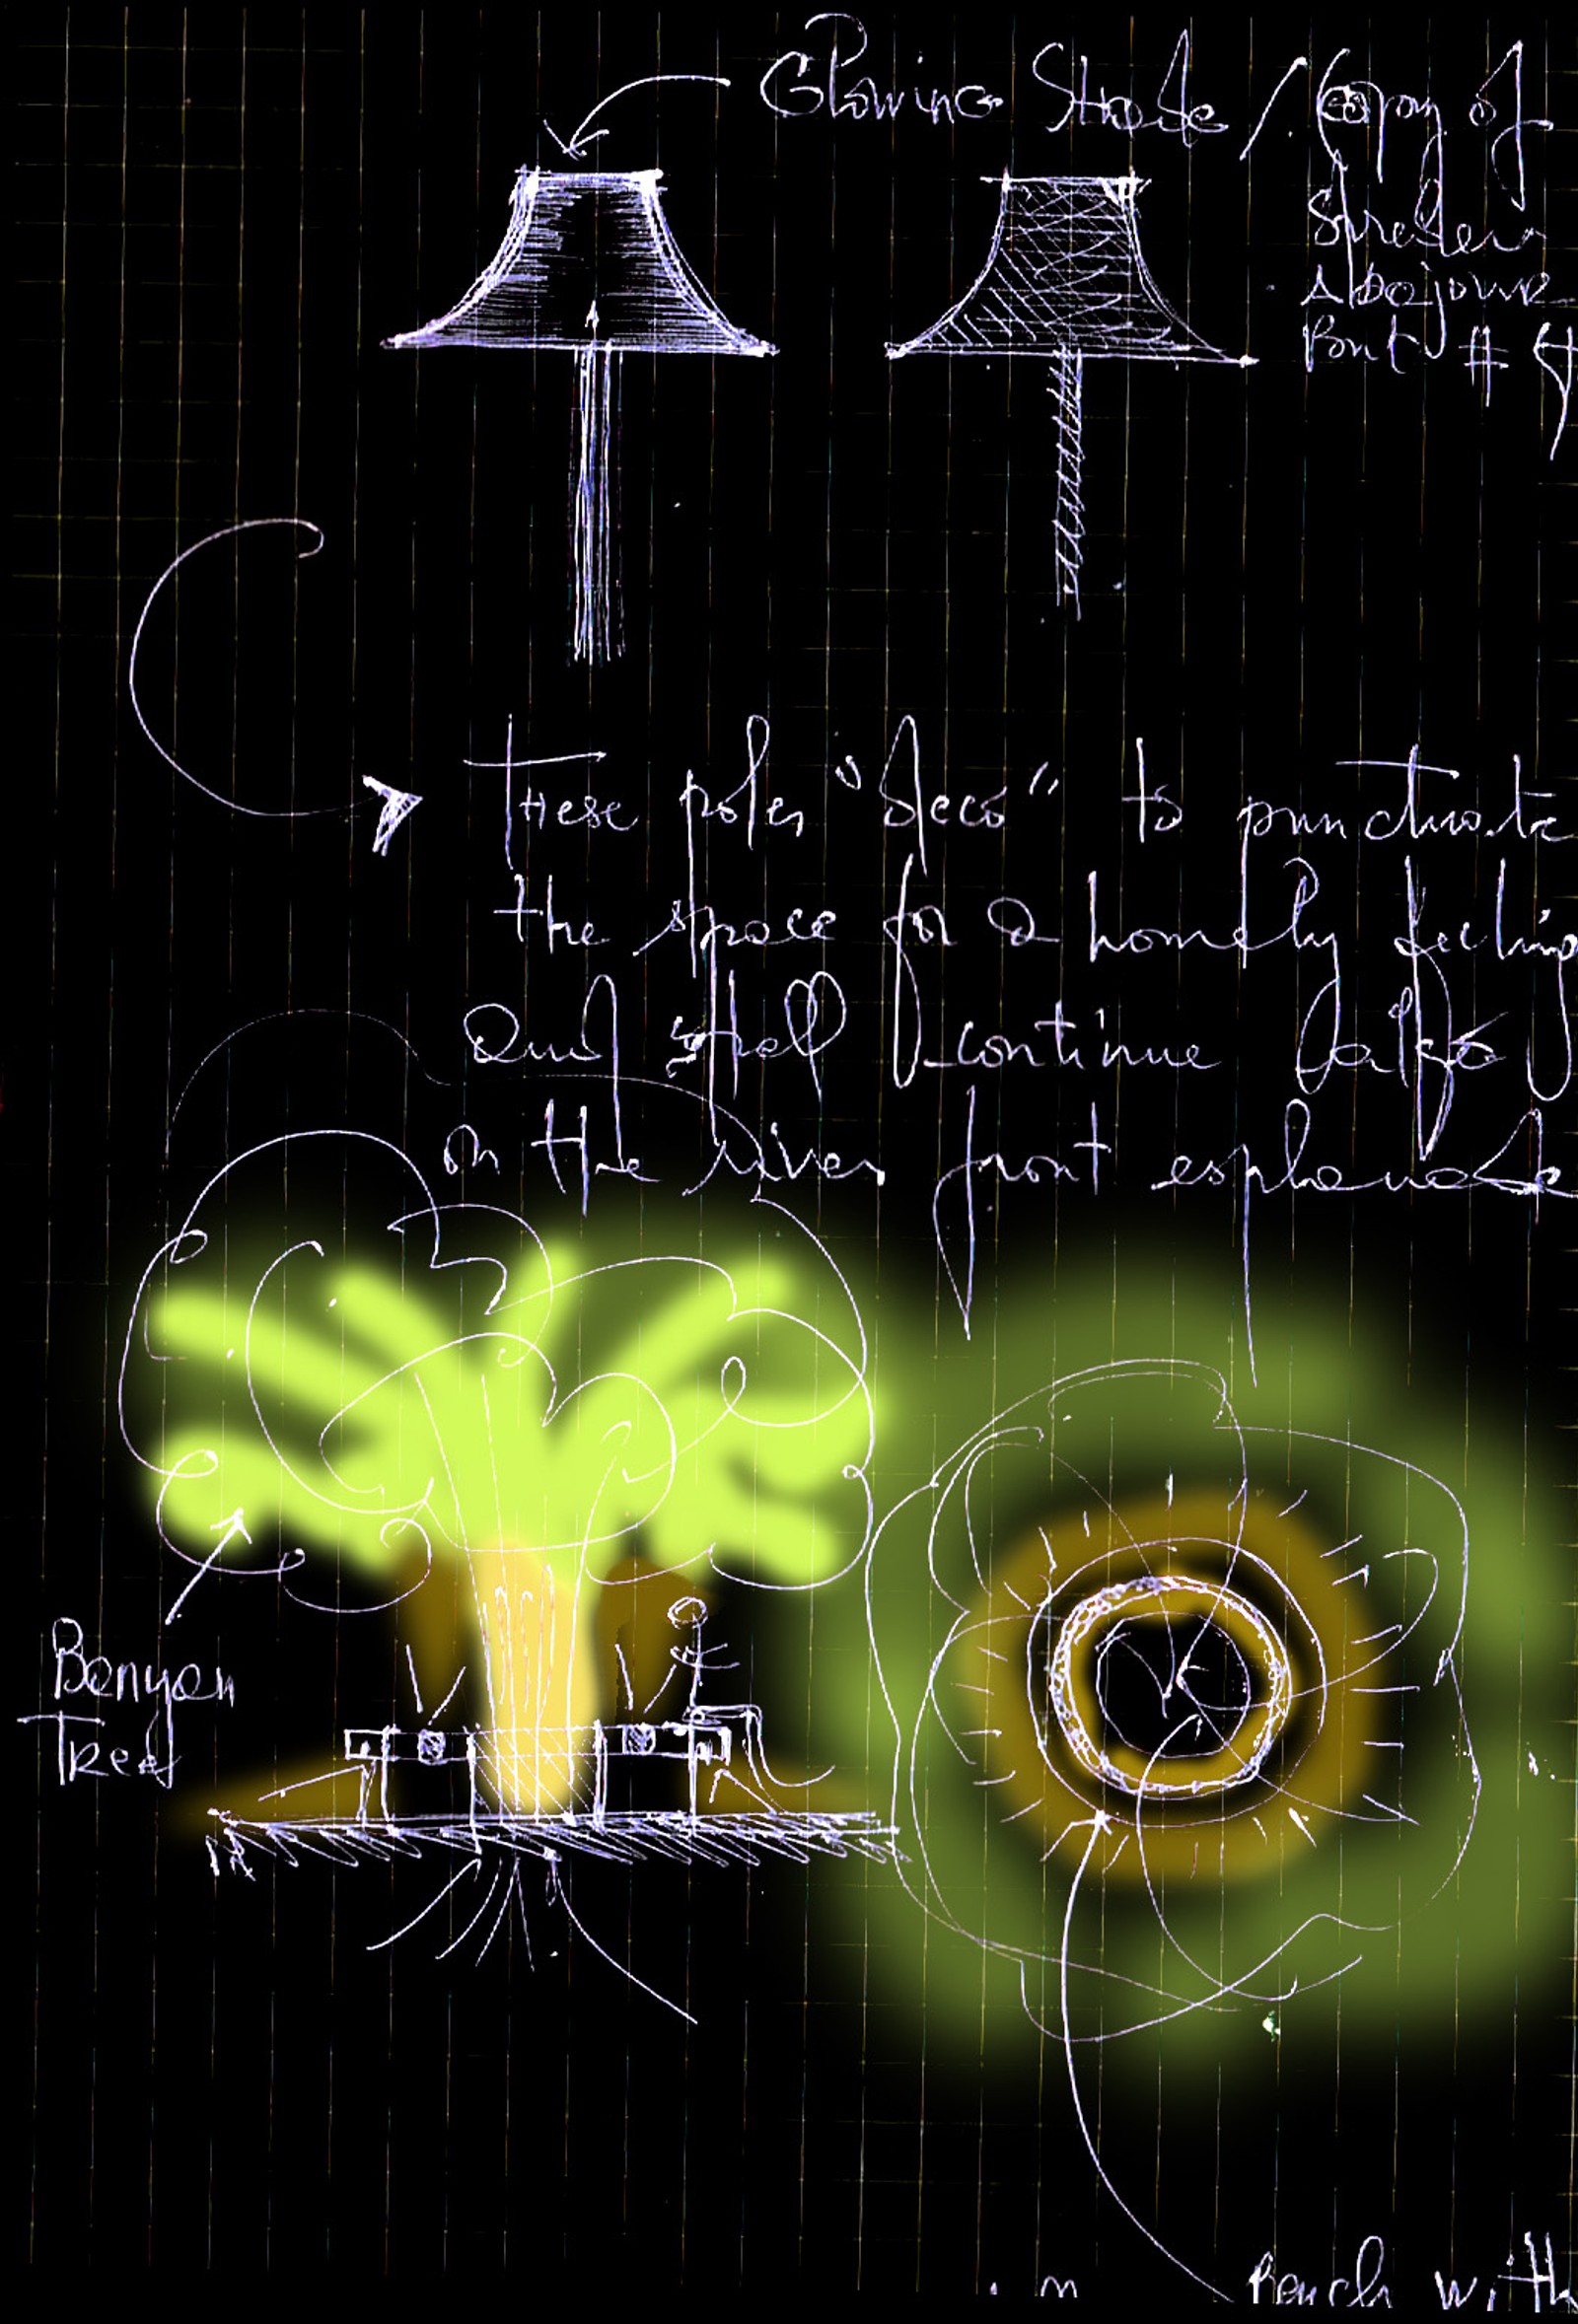 Glowing Shade / Copy of
abajour
Pont #
These poles "deco" to punctuate
the space for a homely feeling
and shall continue
on the river front esplanade
Banyan
Tree
Bench with